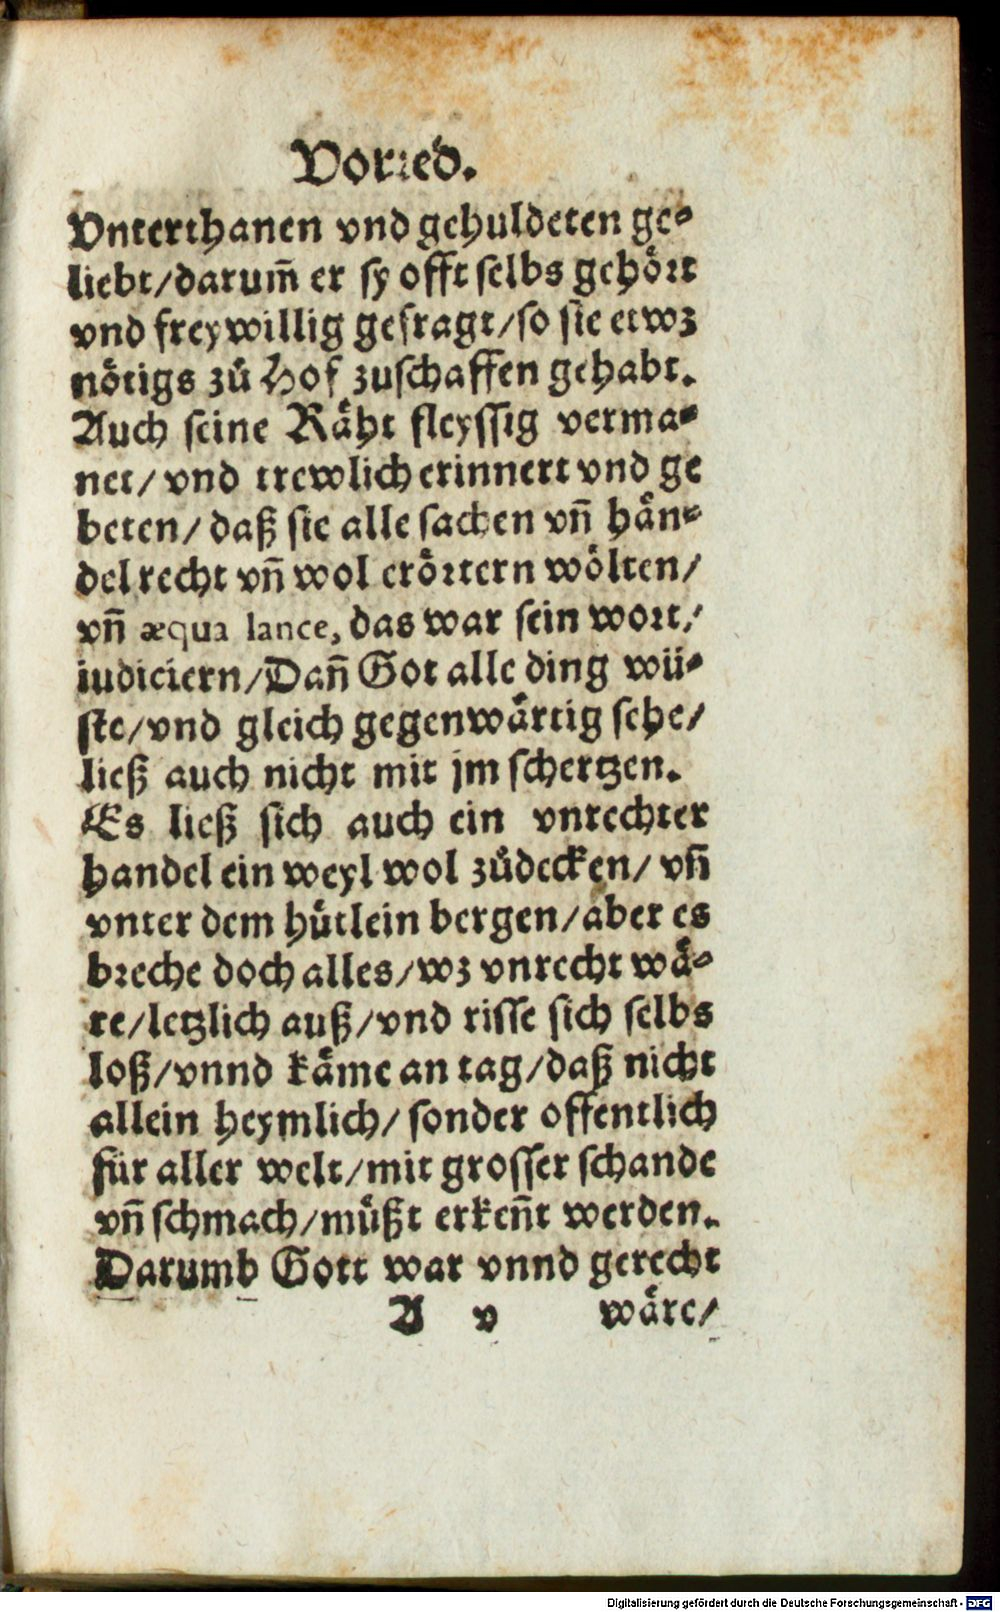 Vorred.
Vnterthanen vnd gehuldeten ge-
liebt/darum̃ er sy offt selbs gehört
vnd freywillig gefragt/so sie etwz
nötigs zů Hof zuschaffen gehabt.
Auch seine Räht fleyssig verma-
net/ vnd trewlich erinnert vnd ge
beten/ daß sie alle sachen vñ hän-
del recht vñ wol erörtern wölten/
vñ æqua lance, das war sein wort/
iudiciern/Dañ Got alle ding wü-
ste/vnd gleich gegenwärtig sehe/
ließ auch nicht mit jm schertzen.
Es ließ sich auch ein vnrechter
handel ein weyl wol zůdecken/ vñ
vnter dem hütlein bergen/aber es
breche doch alles/wz vnrecht wä-
re/letzlich auß/vnd risse sich selbs
loß/vnnd käme an tag/daß nicht
allein heymlich/ sonder offentlich
für aller welt/mit grosser schande
vñ schmach/müßt erkeñt werden.
Darumb Gott war vnnd gerecht
A v wäre/
Digitalisierung gefördert durch die Deutsche Forschungsgemeinschaft - DFG